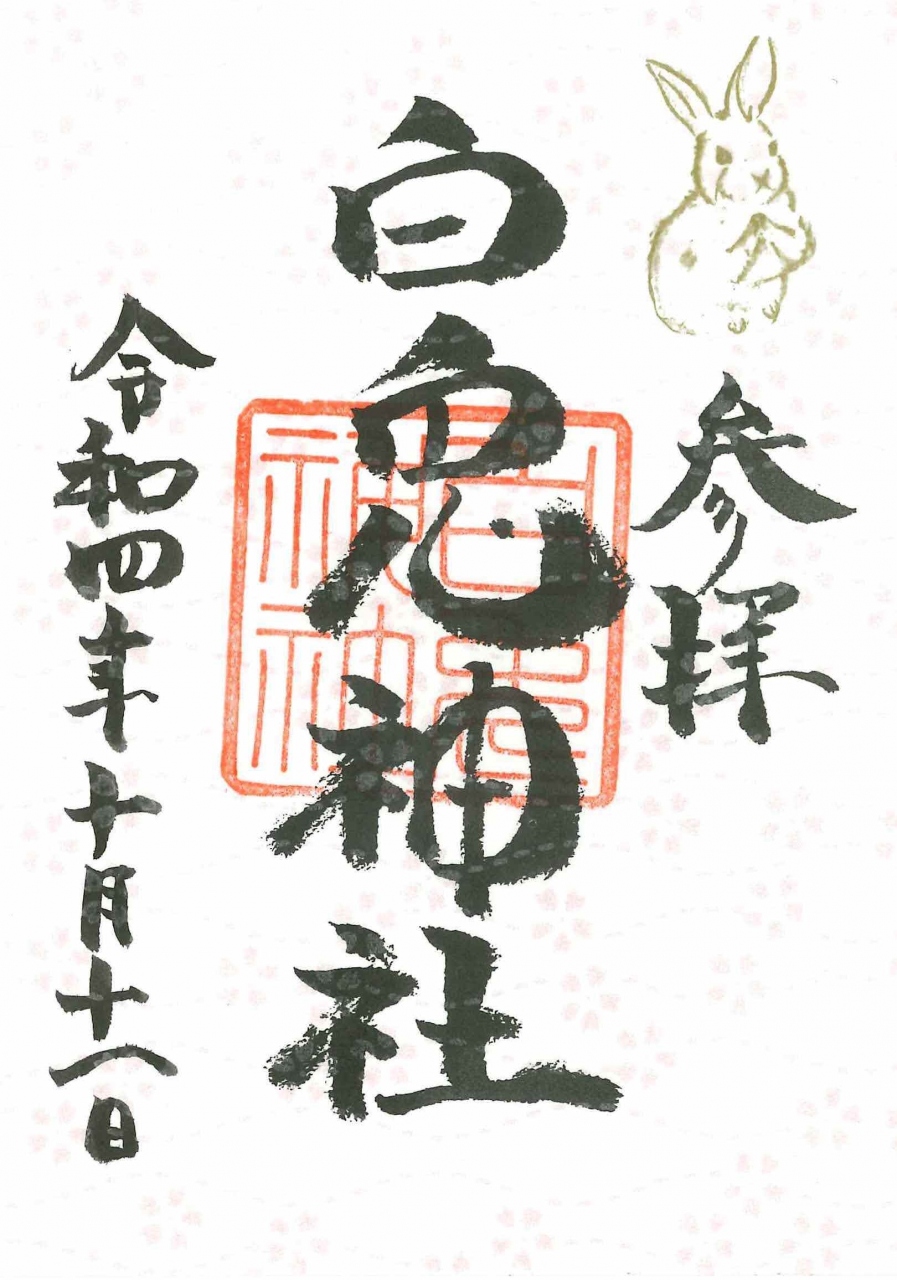 参拝
白兎神社
白兎神社
令和四年十月十八日